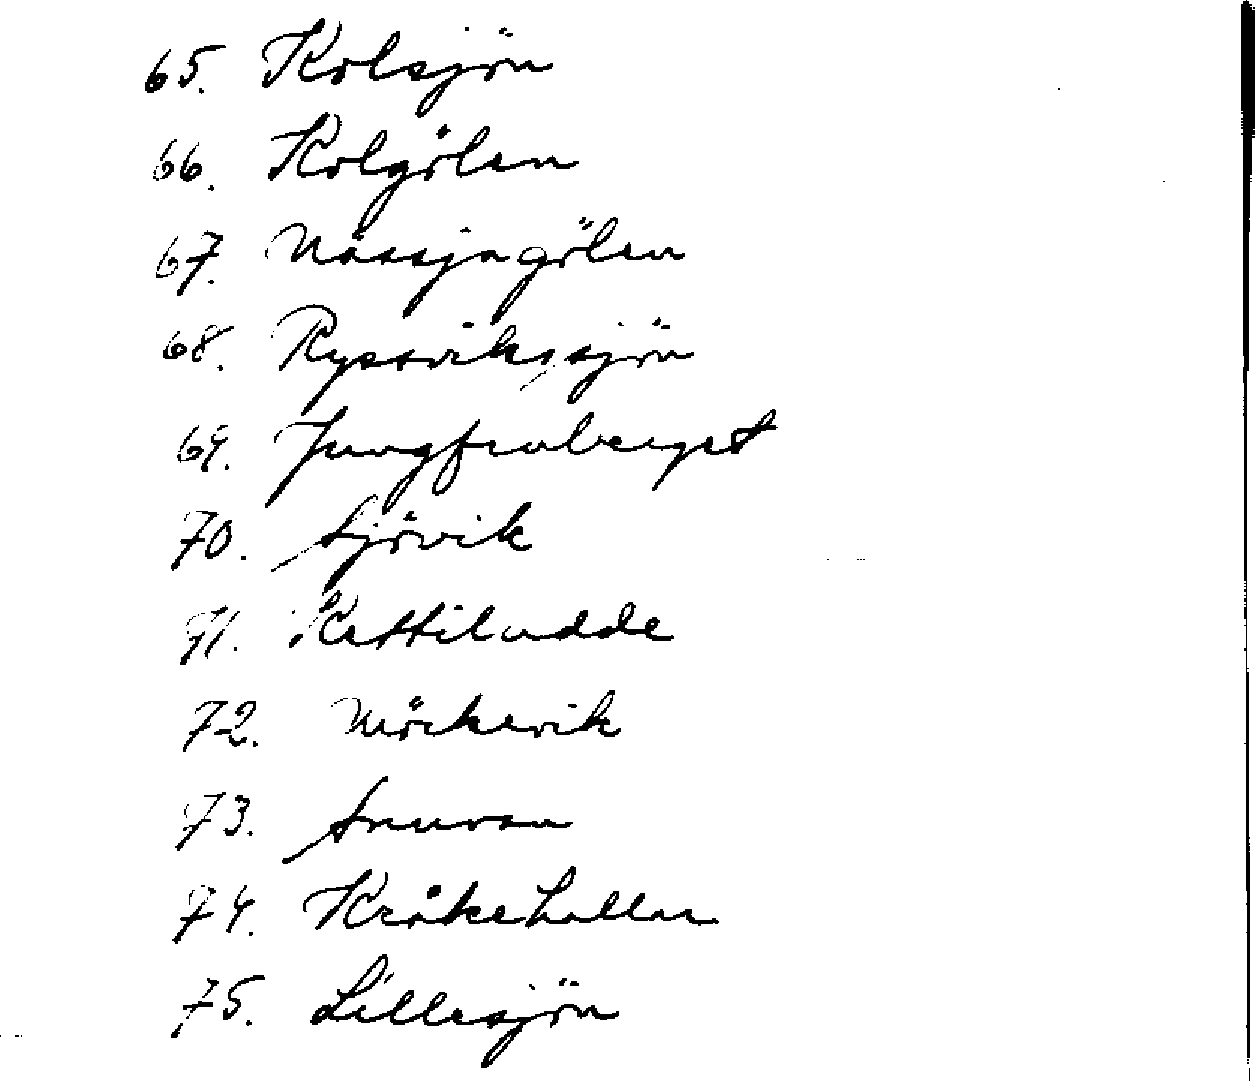 65. Kolsjön
66. Kolgölen
67. Nässjagölen
68. Ryssvikssjön
69. Jungfruberget
70. Sjövik
71. Kettiludde
72. Möckevik
73. Snuvan
74. Kråkehallar
75. Lillesjön